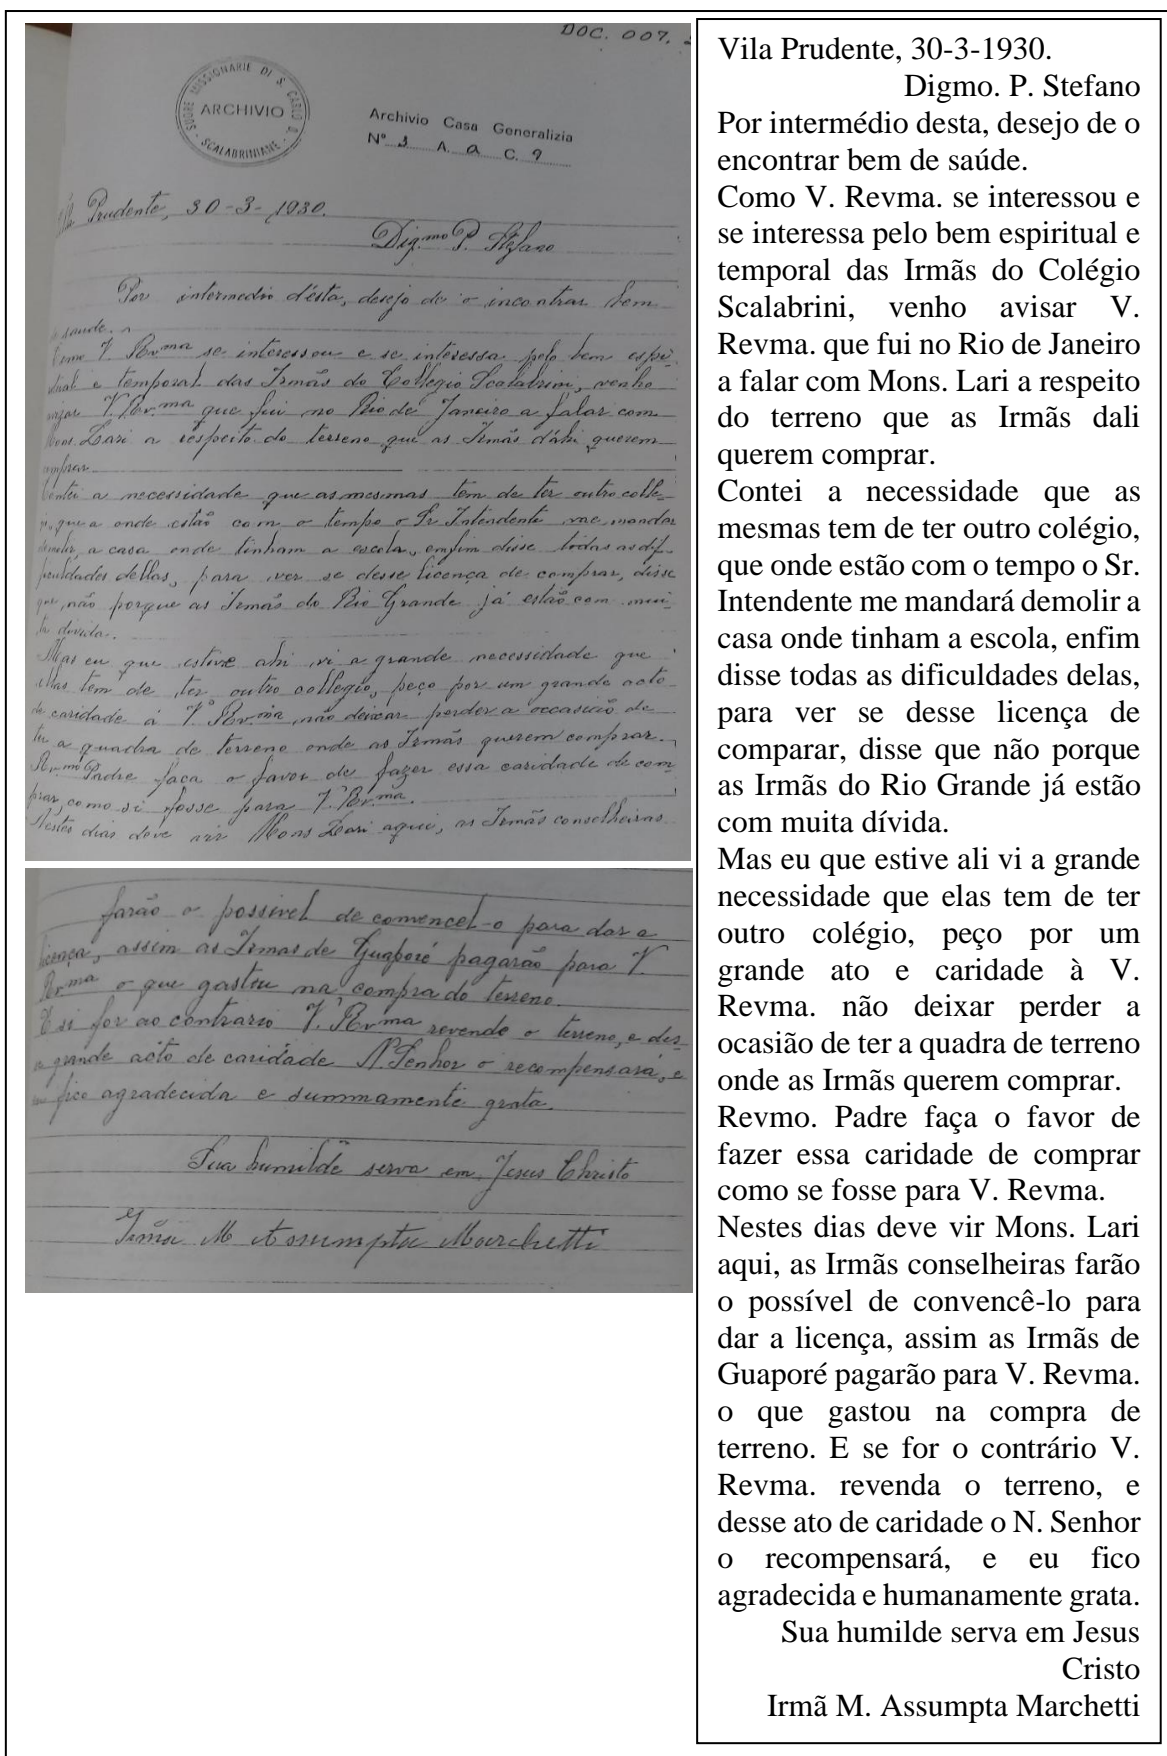 DOC. 007.
SUORE MISSIONARIE DI S. CARLO B. - SCALABRINIANE -
ARCHIVIO
Archivio Casa Generalizia
N° 3 A. a C. 9
Prudente, 30-3-1930.
Dig.mo P. Stefano
Por intermedio d'ésta, desejo de o incontrar bem
saude.
Como V. Rv.ma se interessou e se interessa pelo bem espi-
tual e temporal das Irmãs do Collegio Scalabrini, venho
V. Rv.ma que fui no Rio de Janeiro a falar com
Mons. Lari a respeito do terreno que as Irmãs d'ahi querem
comprar
Contei a necessidade que as mesmas tem de ter outro colle-
que a onde estão com o tempo o Sr Intendente vae mandar
a casa onde tinham a escola, emfim disse todas as dif-
ficuldades dellas, para ver se desse licença de comprar, disse
que não porque as Irmãs do Rio Grande já estão com mui-
ta divida.
Mas eu que estive ahi vi a grande necessidade que
ellas tem de ter outro collegio, peço por um grande acto
de caridade á V. Rv.ma não deixar perder a occasião de
ter a quadra de terreno onde as Irmãs querem comprar.
Rv.mo Padre faça o favor de fazer essa caridade de com-
prar, como si fosse para V. Rv.ma.
Nestes dias deve vir Mons Lari aqui, as Irmãs conselheiras
farão o possivel de convencel-o para dar a
licença, assim as Irmas de Guaporé pagarão para V.
Rv.ma o que gastou na compra do terreno.
E si for ao contrario V. Rv.ma revende o terreno, e des-
grande acto de caridade N. Senhor o recompensará, e
fico agradecida e summamente grata.
Sua humilde serva em Jesus Christo
Irmã M Assumpta Marchetti
Vila Prudente, 30-3-1930.
Digmo. P. Stefano
Por intermédio desta, desejo de o
encontrar bem de saúde.
Como V. Revma. se interessou e
se interessa pelo bem espiritual e
temporal das Irmãs do Colégio
Scalabrini, venho avisar V.
Revma. que fui no Rio de Janeiro
a falar com Mons. Lari a respeito
do terreno que as Irmãs dali
querem comprar.
Contei a necessidade que as
mesmas tem de ter outro colégio,
que onde estão com o tempo o Sr.
Intendente me mandará demolir a
casa onde tinham a escola, enfim
disse todas as dificuldades delas,
para ver se desse licença de
comparar, disse que não porque
as Irmãs do Rio Grande já estão
com muita dívida.
Mas eu que estive ali vi a grande
necessidade que elas tem de ter
outro colégio, peço por um
grande ato e caridade à V.
Revma. não deixar perder a
ocasião de ter a quadra de terreno
onde as Irmãs querem comprar.
Revmo. Padre faça o favor de
fazer essa caridade de comprar
como se fosse para V. Revma.
Nestes dias deve vir Mons. Lari
aqui, as Irmãs conselheiras farão
o possível de convencê-lo para
dar a licença, assim as Irmãs de
Guaporé pagarão para V. Revma.
o que gastou na compra de
terreno. E se for o contrário V.
Revma. revenda o terreno, e
desse ato de caridade o N. Senhor
o recompensará, e eu fico
agradecida e humanamente grata.
Sua humilde serva em Jesus
Cristo
Irmã M. Assumpta Marchetti